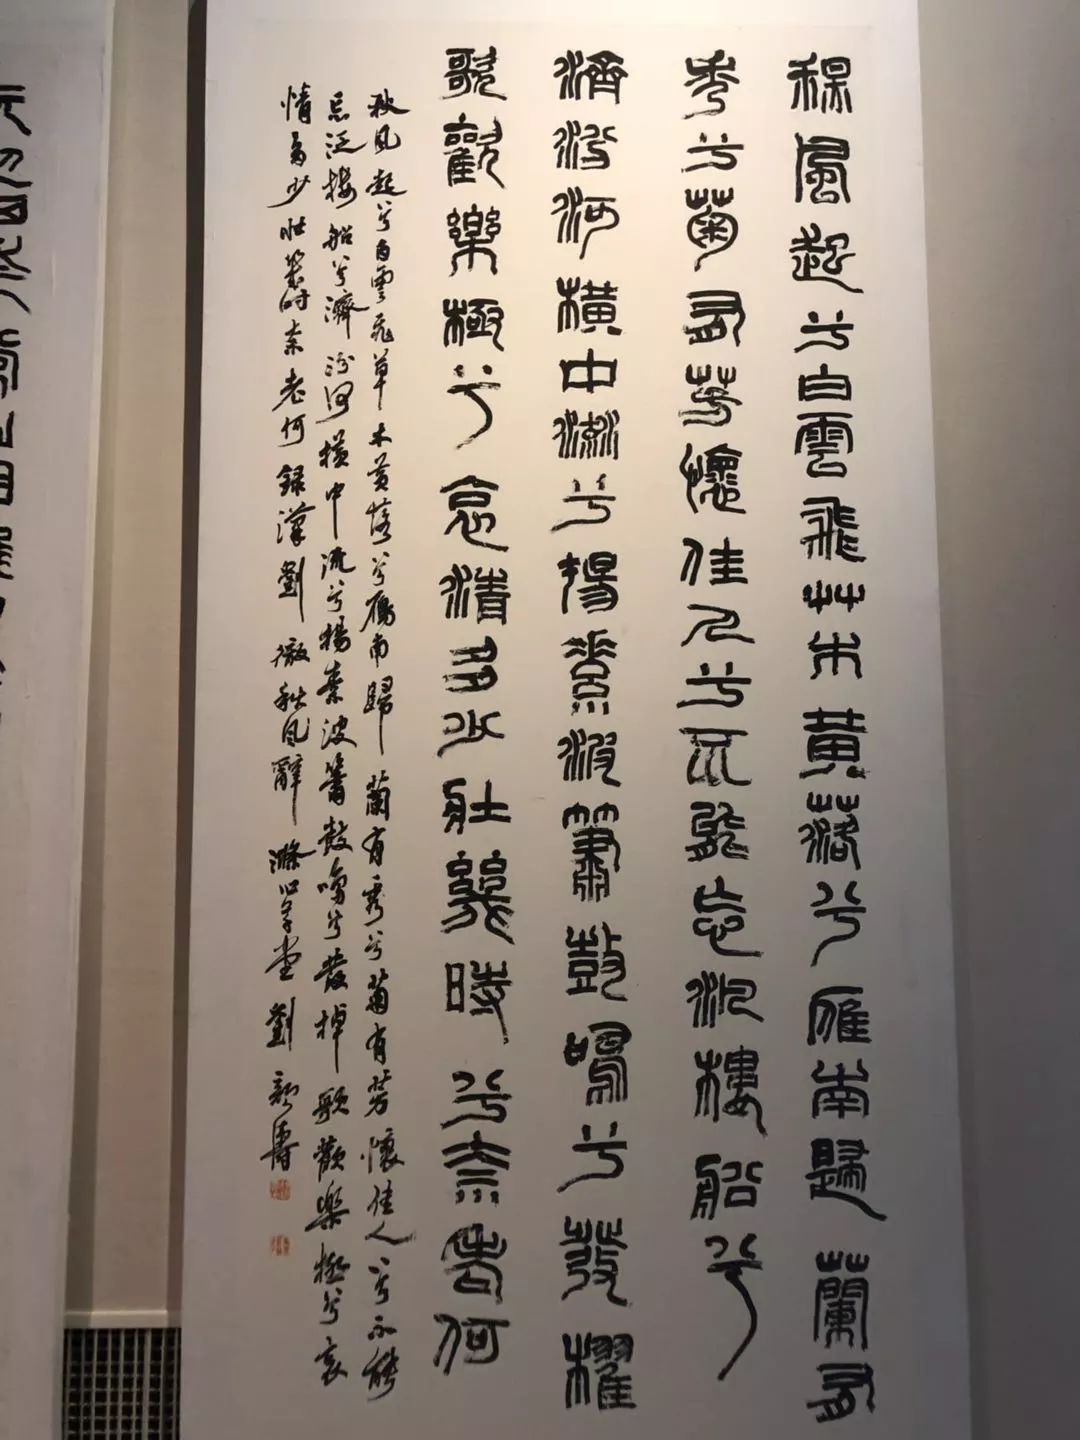 秋風起兮白雲飛艸木黃落兮雁南歸蘭有
秀兮菊有芳懷佳人兮不能忘泛樓船兮
濟汾河橫中流兮揚素波簫鼓鳴兮發櫂
歌歡樂極兮哀情多少壯幾時兮奈老何
秋風起兮白雲飛草木黃落兮雁南歸蘭有秀兮菊有芳懷佳人兮不能
忘泛樓船兮濟汾河橫中流兮揚素波簫鼓鳴兮發棹歌歡樂極兮哀
情多少壯幾時奈老何錄漢劉徹秋風辭滌心草堂劉顏濤